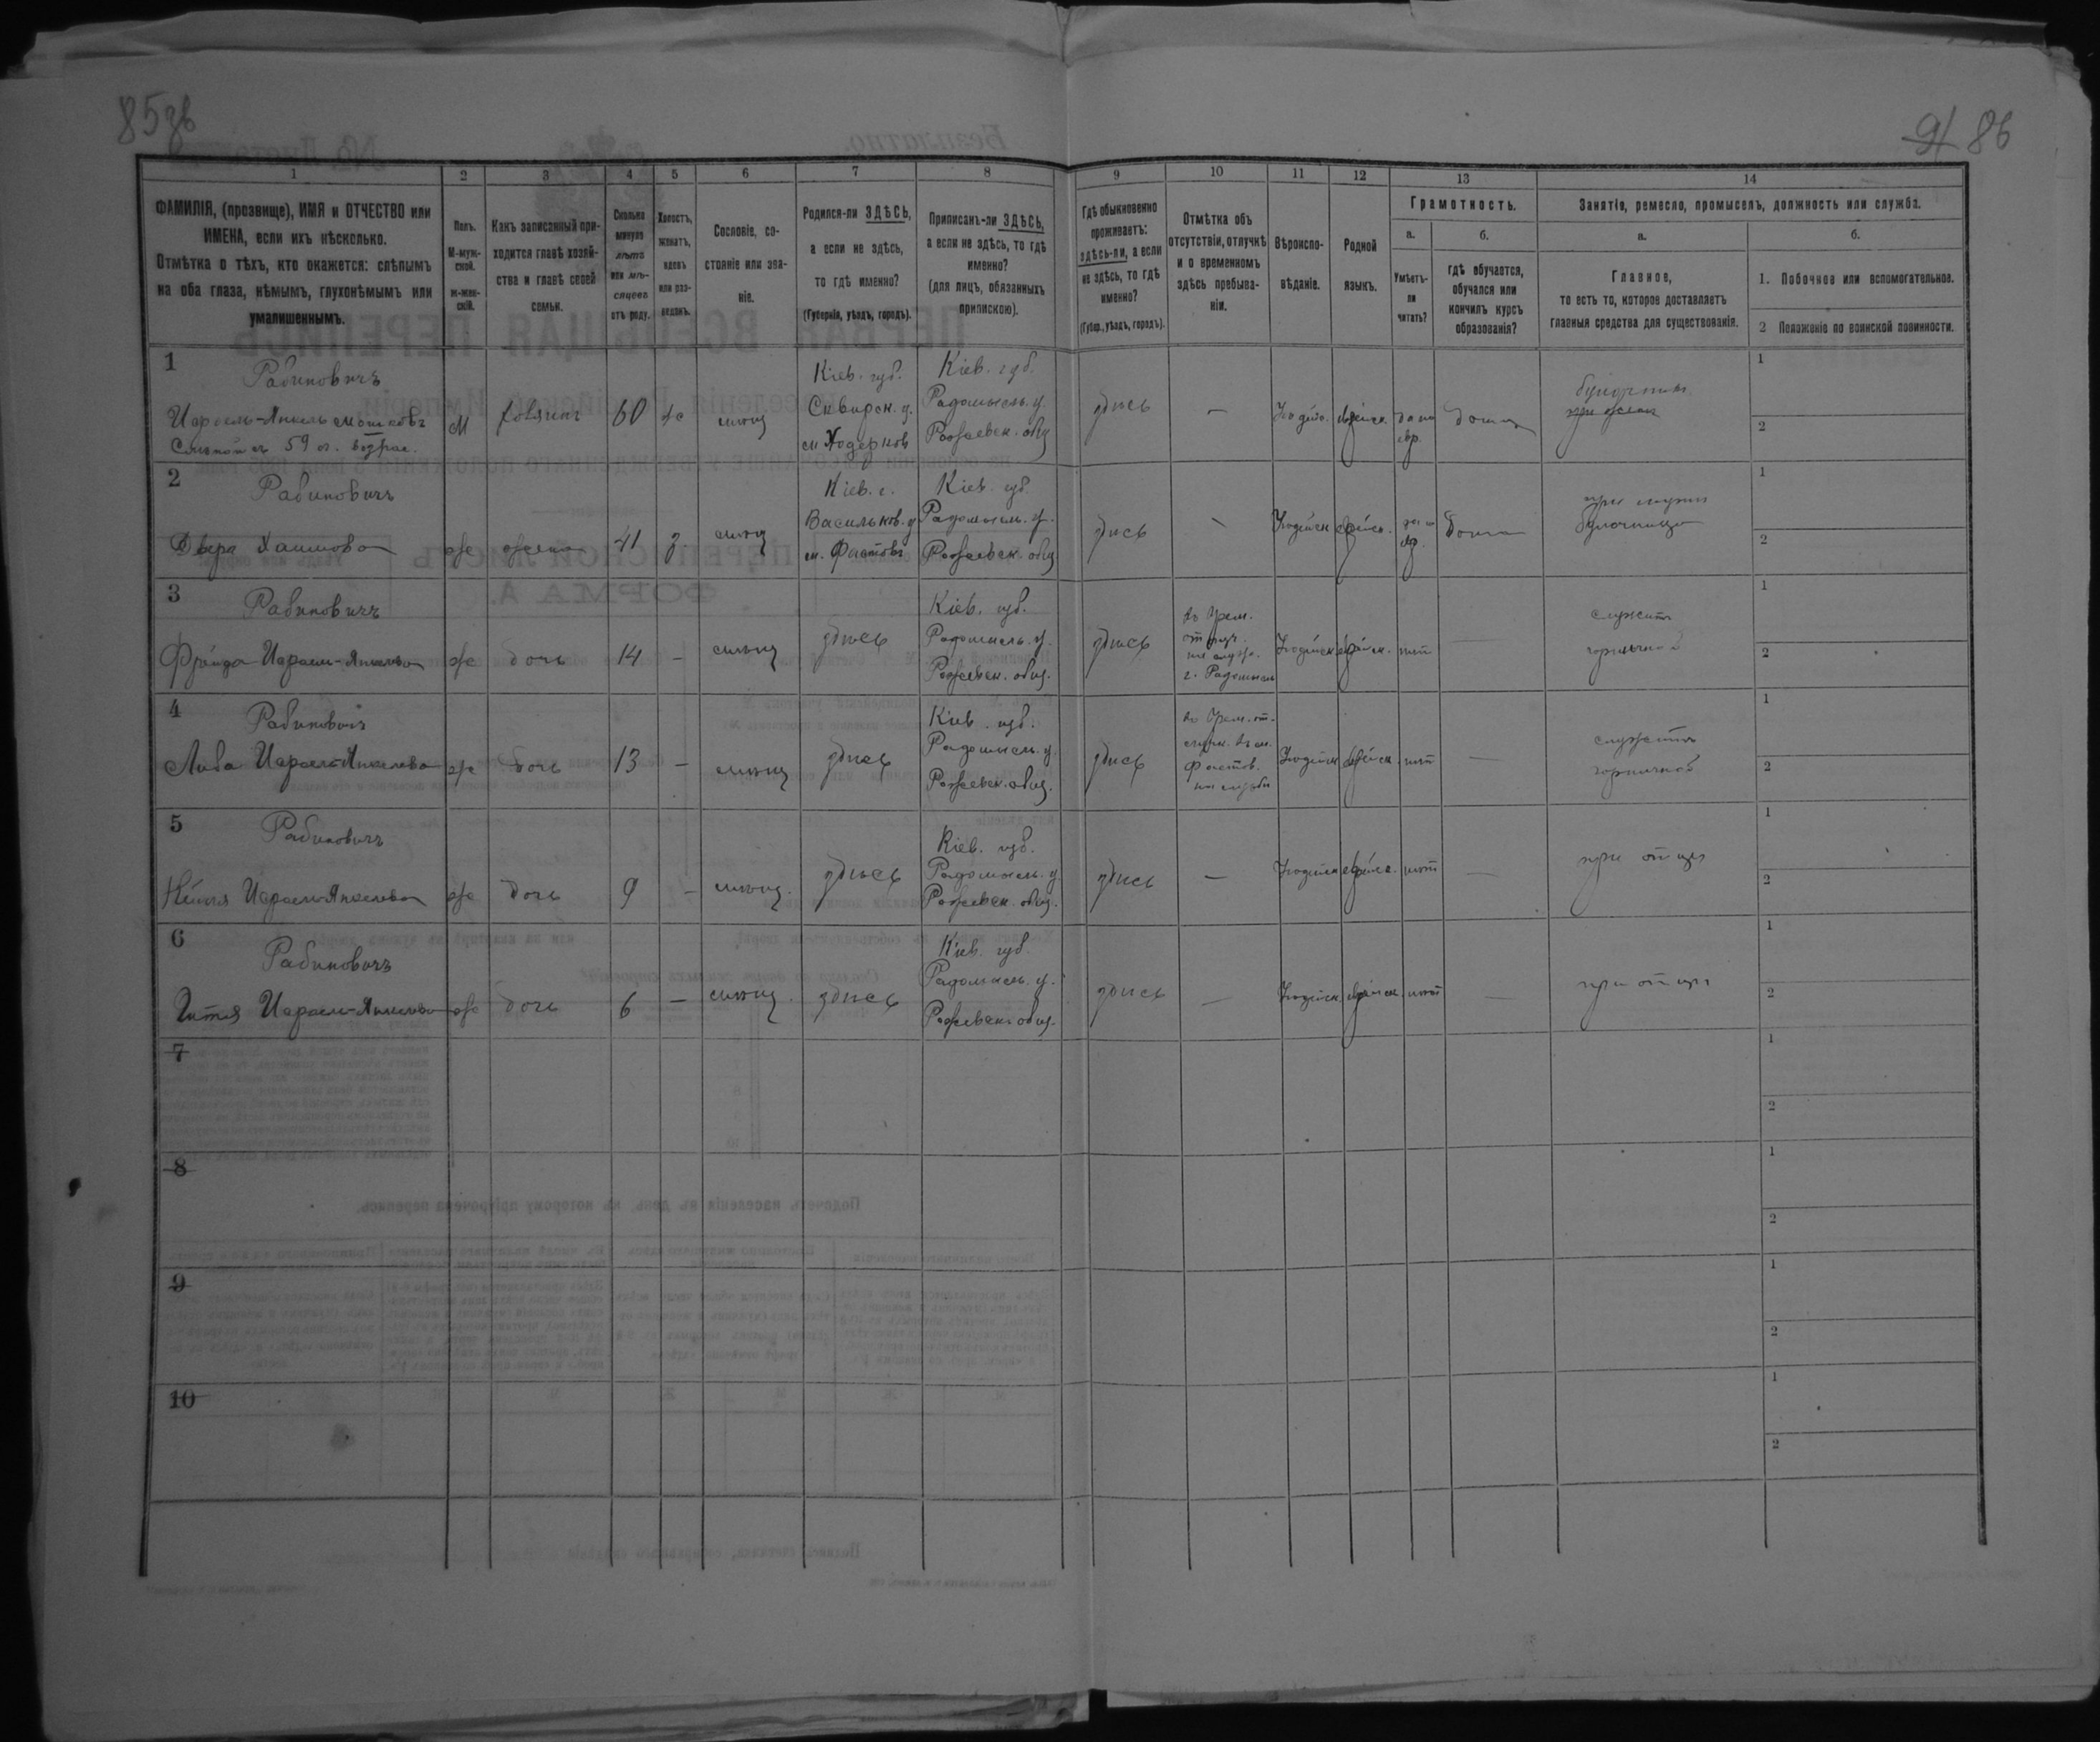 85об
91 86
1
2
3
4
5
6
7
8
9
10
11
12
13
14
ФАМИЛІЯ, (прозвище), ИМЯ и ОТЧЕСТВО или
ИМЕНА, если ихъ нѣсколько.
Отмѣтка о тѣхъ, кто окажется: слѣпымъ
на оба глаза, нѣмымъ, глухонѣмымъ или
умалишеннымъ.
Полъ.
М-муж-
ской.
ж-жен-
скій.
Какъ записанный при-
ходится главѣ хозяй-
ства и главѣ своей
семьи.
Сколько
минуло
лѣтъ
или мѣ-
сяцевъ
отъ роду.
Холостъ,
женатъ,
вдовъ
или раз-
веденъ.
Сословіе, со-
стояніе или зва-
ніе.
Родился-ли ЗДѢСЬ,
а если не здѣсь,
то гдѣ именно?
(Губернія, уѣздъ, городъ).
Приписанъ-ли ЗДѢСЬ,
а если не здѣсь, то гдѣ
именно?
(для лицъ, обязанныхъ
припискою).
Гдѣ обыкновенно
проживаетъ:
здѣсь-ли, а если
не здѣсь, то гдѣ
именно?
(Губер., уѣздъ, городъ).
Отмѣтка объ
отсутствіи, отлучкѣ
и о временномъ
здѣсь пребыва-
ніи.
Вѣроиспо-
вѣданіе.
Родной
языкъ.
Грамотность.
а.
Умѣетъ-
ли
читать?
б.
гдѣ обучается,
обучался или
кончилъ курсъ
образованія?
Занятіе, ремесло, промыселъ, должность или служба.
а.
Главное,
то есть то, которое доставляетъ
главныя средства для существованія.
б.
1. Побочное или вспомогательное.
2 Положеніе по воинской повинности.
1
Рабиновичъ
Израель-Янкель Мошковъ
Слѣпой съ 59 л. возрас.
М
хозяинъ
60
ж
мѣщ
Кіев. губ.
Сквирск. у.
м Ходорков
Кіев. губ.
Радомысль. у.
Рожевск. общ
здѣсь
—
Іюдейс.
еврейск
да по
евр.
дома
1
2
2
Рабиновичъ
Двера Хаимова
ж
жена
41
з.
мѣщ
Кіев. г.
Васильков. у
м. Фастовъ
Кіев. губ
Радомысль. у.
Рожевск. общ
здѣсь
—
Іюдейск
еврейск.
да по
евр.
дома
при мужѣ
булочница
1
2
3
Рабиновичъ
Фрейда Израель-Янкелева
ж
дочь
14
—
мѣщ
здѣсь
Кіев. губ.
Радомысль. у.
Рожевск. общ.
здѣсь
въ врем.
отлуч.
на служ.
г. Радомысль
Іюдейск
еврейск.
нѣт
—
служитъ
горничной
1
2
4
Рабиновичъ
Либа Израель-Янкелева
ж
дочь
13
—
мѣщ
здѣсь
Кіев. губ.
Радомысль. у.
Рожевск. общ.
здѣсь
въ врем. от-
лучк. въ м.
Фастов.
на службѣ
Іюдейск
еврейск.
нѣт
—
служитъ
горничной
1
2
5
Рабиновичъ
Израель-Янкелева
ж
дочь
9
—
мѣщ.
здѣсь
Кіев. губ.
Радомысль. у
Рожевск. общ.
здѣсь
—
Іюдейск
еврейск.
нѣт
—
при отцѣ
1
2
6
Рабиновичъ
Гитля Израель-Янкелева
ж
дочь
6
—
мѣщ.
здѣсь
Кіев. губ.
Радомысль. у.
Рожевск. общ.
здѣсь
—
Іюдейск.
еврейск.
нѣт
—
при отцѣ
1
2
7
1
2
8
1
2
9
1
2
10
1
2